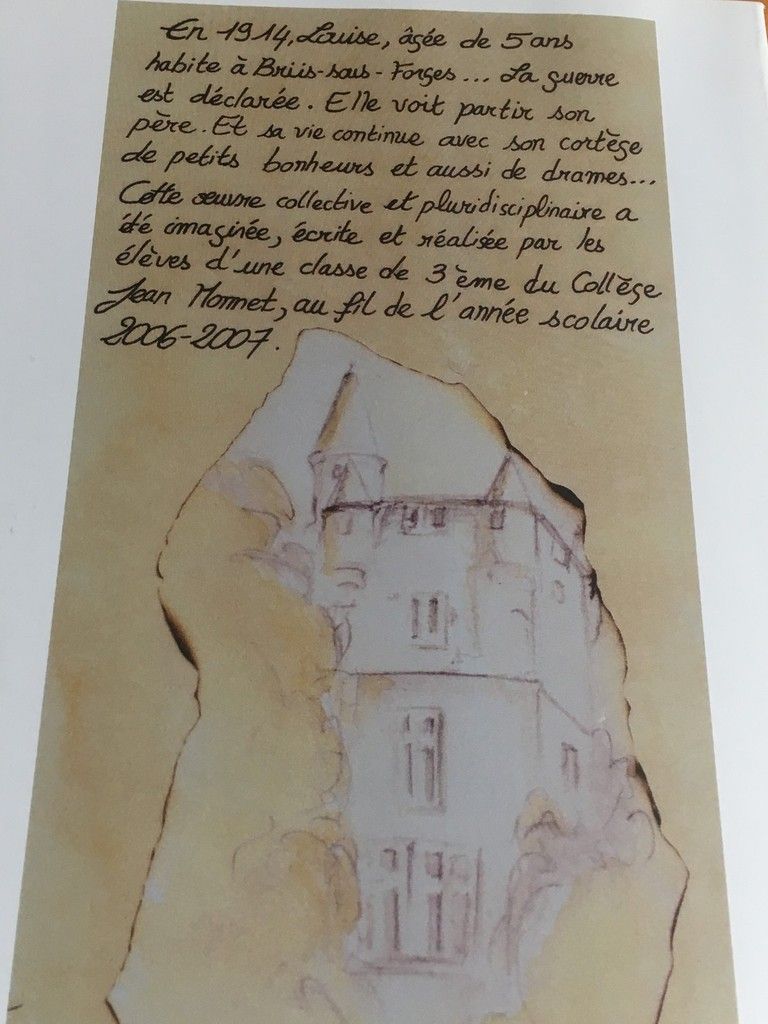 En 1914, Louise, âgée de 5 ans
habite à Briis-sous-Forges... La guerre
est déclarée. Elle voit partir son
père. Et sa vie continue avec son cortège
de petits bonheurs et aussi de drames...
Cette œuvre collective et pluridisciplinaire a
été imaginée, écrite et réalisée par les
élèves d'une classe de 3ème du Collège
Jean Monnet, au fil de l'année scolaire
2006-2007.